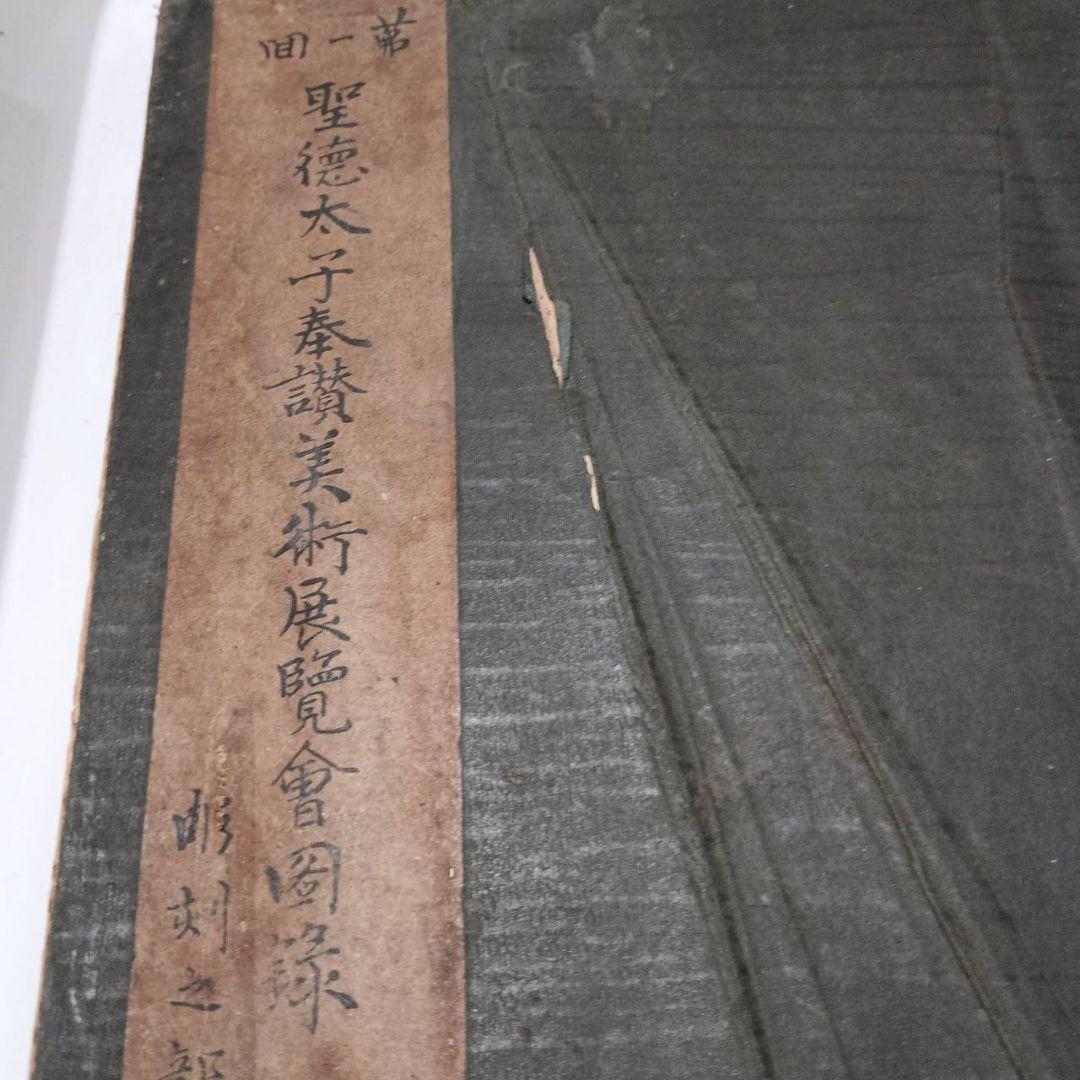 第一回
聖德太子奉讃美術展覽會圖錄
彫刻之部